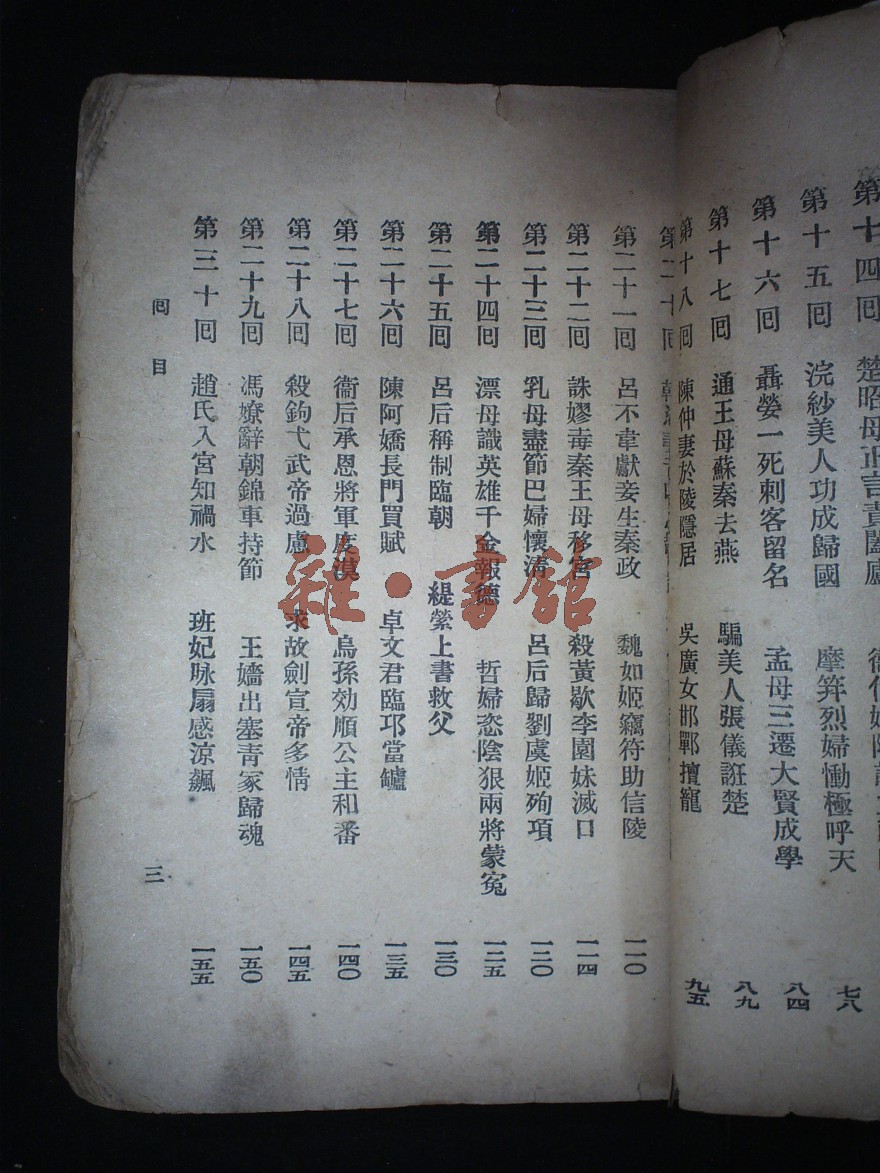 第十四囘 楚昭母正言責闔廬
第十五囘 浣紗美人功成歸國 摩笄烈婦慟極呼天 七八
第十六囘 聶嫈一死刺客留名 孟母三遷大賢成學 八四
第十七囘 通王母蘇秦去燕 騙美人張儀誑楚 八九
第十八囘 陳仲妻於陵隱居 吳廣女邯鄲擅寵 九五
第二十囘
第二十一囘 呂不韋獻妾生秦政 魏如姬竊符助信陵 一一〇
第二十二囘 誅嫪毐秦王母移宮 殺黃歇李園妹滅口 一一四
第二十三囘 乳母盡節巴婦懷清 呂后歸劉虞姬殉項 一二〇
第二十四囘 漂母識英雄千金報德 哲婦恣陰狠兩將蒙寃 一二五
第二十五囘 呂后稱制臨朝 緹縈上書救父 一三〇
第二十六囘 陳阿嬌長門買賦 卓文君臨邛當鑪 一三五
第二十七囘 衞后承恩將軍度漠 烏孫効順公主和番 一四〇
第二十八囘 殺鉤弋武帝過慮 求故劍宣帝多情 一四五
第二十九囘 馮嫽辭朝錦車持節 王嬙出塞靑冢歸魂 一五〇
第三十囘 趙氏入宮知禍水 班妃咏扇感涼飆 一五五
囘目 三
雜·書館